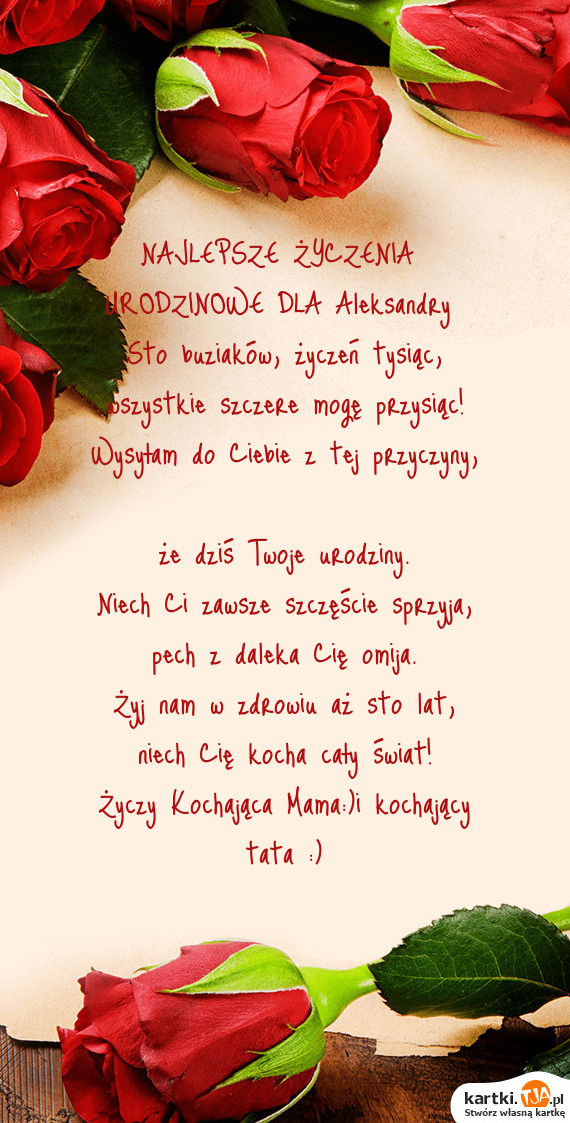 NAJLEPSZE ŻYCZENIA
URODZINOWE DLA Aleksandry
Sto buziaków, życzeń tysiąc,
wszystkie szczere mogę przysiąc!
Wysyłam do Ciebie z tej przyczyny,
że dziś Twoje urodziny.
Niech Ci zawsze szczęście sprzyja,
pech z daleka Cię omija.
Żyj nam w zdrowiu aż sto lat,
niech Cię kocha cały świat!
Życzy Kochająca Mama:)i kochający
tata :)
kartki.TJA.pl
Stwórz własną kartkę